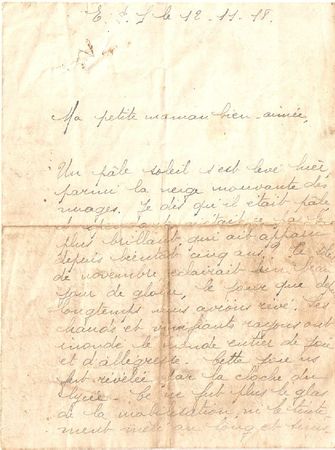 E. S. J le 12-11-18.
Ma petite maman bien-aimée,
Un pâle soleil s'est levé hier,
parmi la neige mouvante des
nuages. Je dis qu'il était pâle
plus brillant qui ait apparu
depuis bientôt cinq ans.
de novembre éclairait un beau
jour de gloire, le jour que dès
longtemps nous avions rêvé. Ses
chauds et vivifiants rayons ont
inondé le monde entier de joie
et d'allégresse. Cette joie nous
fut révélée par la cloche du
lycée. Ce ne fut plus le glas
de la mobilisation, ni le tinte
ment mêlé au long et